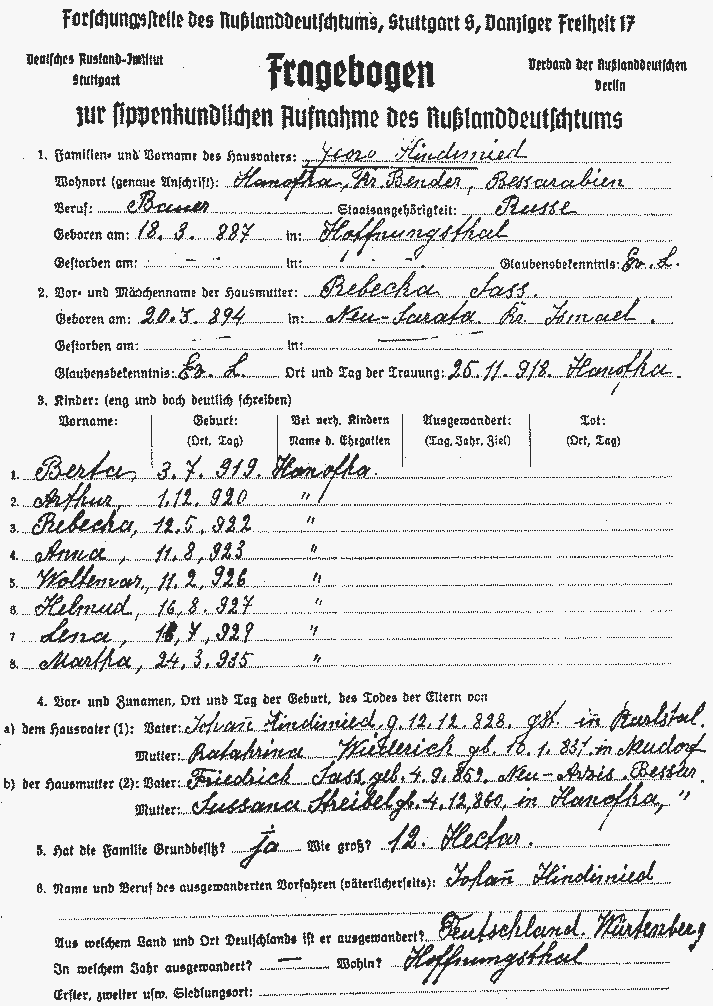 Forschungsstelle des Rußlanddeutschtums, Stuttgart S, Danziger Freiheit 17
Deutsches Ausland-Institut
Stuttgart
Fragebogen
Verband der Rußlanddeutschen
Berlin
zur sippenkundlichen Aufnahme des Rußlanddeutschtums
1. Familien- und Vorname des Hausvaters: Hindimied
Wohnort (genaue Anschrift): Hanofka, Kr. Bender, Bessarabien
Beruf: Bauer Staatsangehörigkeit: Russe
Geboren am: 18. 3. 887 in: Hoffnungsthal
Gestorben am: - - in: - - Glaubensbekenntnis: Ev. L.
2. Vor- und Mädchenname der Hausmutter: Rebecka Sass.
Geboren am: 894 in: Neu-Sarata Kr. Ismael.
Gestorben am: — in: —
Glaubensbekenntnis: Ev. L. Ort und Tag der Trauung: 25. 11. 918. Hanofka.
3. Kinder: (eng und doch deutlich schreiben)
Vorname: Geburt: (Ort, Tag) Bei verh. Kindern Name d. Ehegatten Ausgewandert: (Tag, Jahr, Ziel) Tot: (Ort, Tag)
1. Berta, 3. 7. 919. Hanofka.
2. Arthur, 1. 12. 920 "
3 Rebecka, 12. 5. 922 "
4. Anna, 11. 8, 923 "
5. Woltemar, 11. 2, 926 "
6 Helmud, 16, 8. 927 "
7 Lena, 7, 929 "
8. Martha, 24. 3. 935 "
4. Vor- und Zunamen, Ort und Tag der Geburt, des Todes der Eltern von
a) dem Hausvater (1): Vater: Johañ Hindimied, g. 12. 12. 828. gst. in Karlstal.
Mutter: Katahrina Wiederich gb. 1. 831. in Neudorf
b) der Hausmutter (2): Vater: Friedrich Sass, geb. 4. 9. 859. Neu-Arzis. Bessar.
Mutter: Sussana Streibel gb. 4. 12, 860, in Hanofka, "
5. Hat die Familie Grundbesitz? ja Wie groß? 12. Hectar.
6. Name und Beruf des ausgewanderten Vorfahren (väterlicherseits): Johañ Hindimied
Aus welchem Land und Ort Deutschlands ist er ausgewandert? Teutschland. Würtenberg
In welchem Jahr ausgewandert? — Wohin? Hoffnungsthal
Erster, zweiter usw. Siedlungsort: